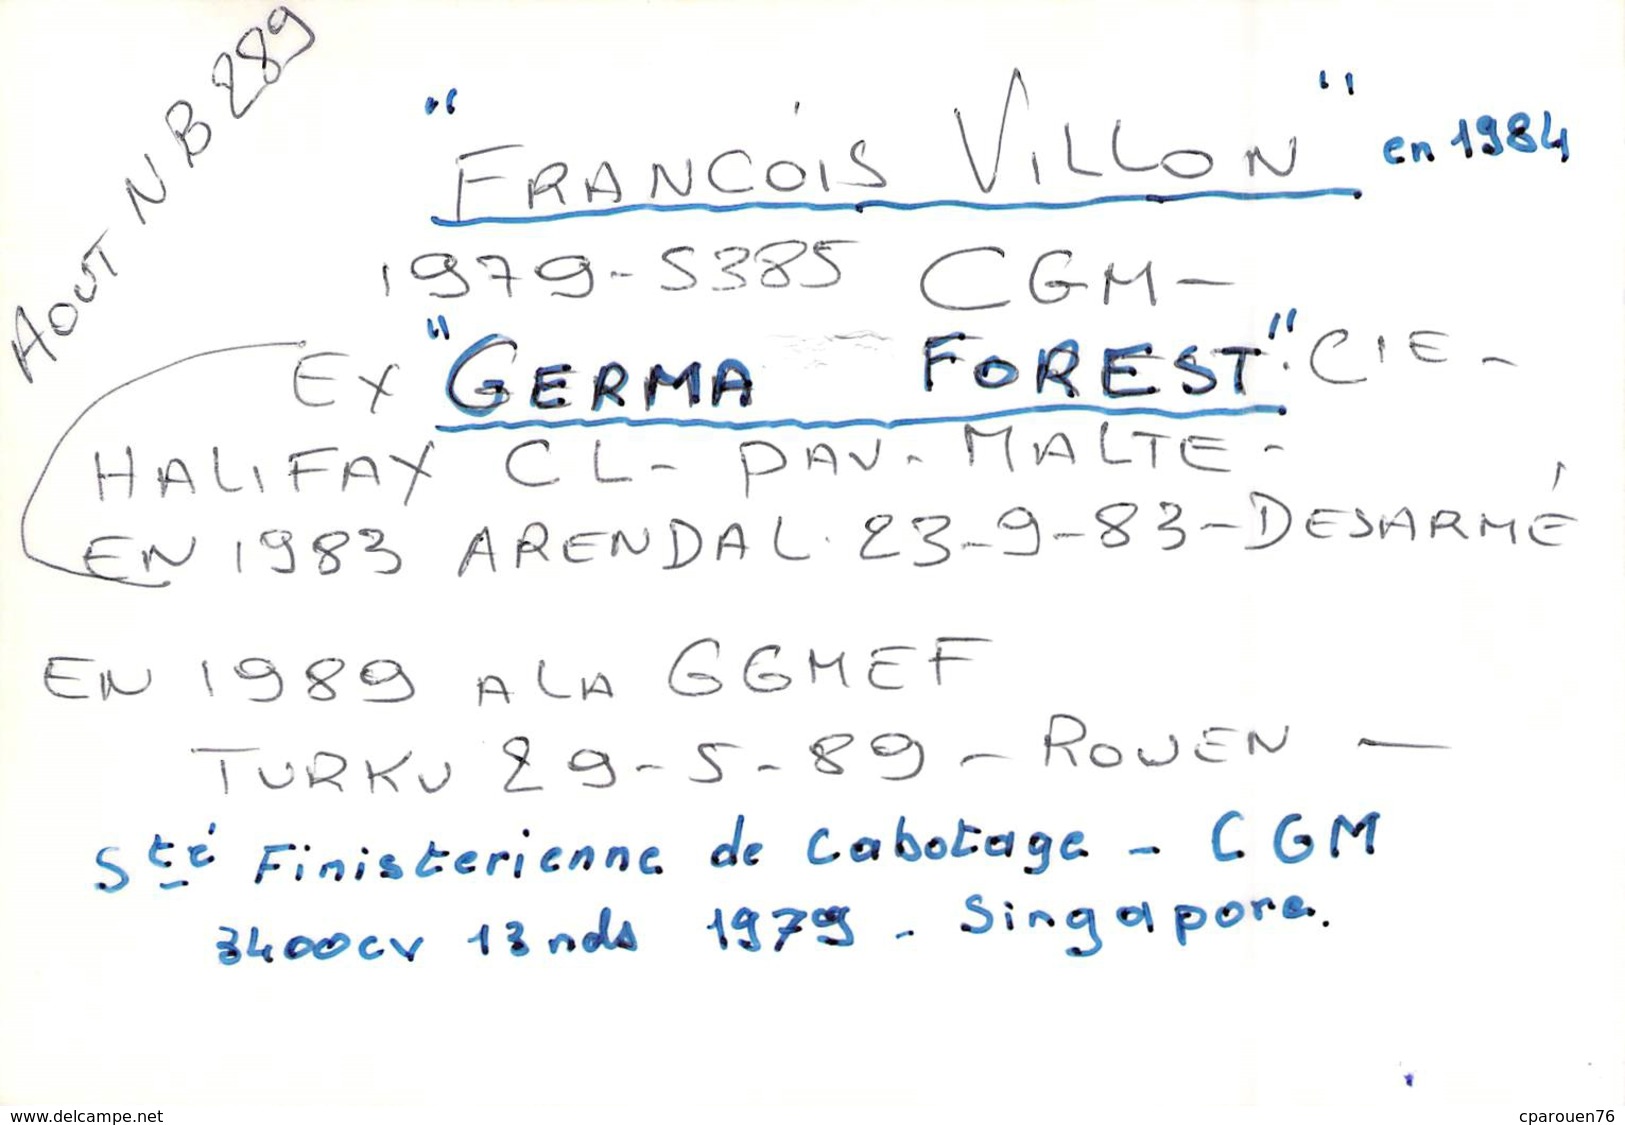 AOUT NB 289
"FRANCOIS VILLON" en 1984
1979-5385 CGM-
EX "GERMA FOREST". CIE-
HALIFAX CL- PAV. MALTE-
EN 1983 ARENDAL. 23-9-83-DESARMÉ
EN 1989 A LA GGMEF
TURKU 29-5-89 - ROUEN —
Sté Finisterienne de Cabotage - CGM
3400cv 13 nds 1979 - Singapore.
www.delcampe.net
cparouen76